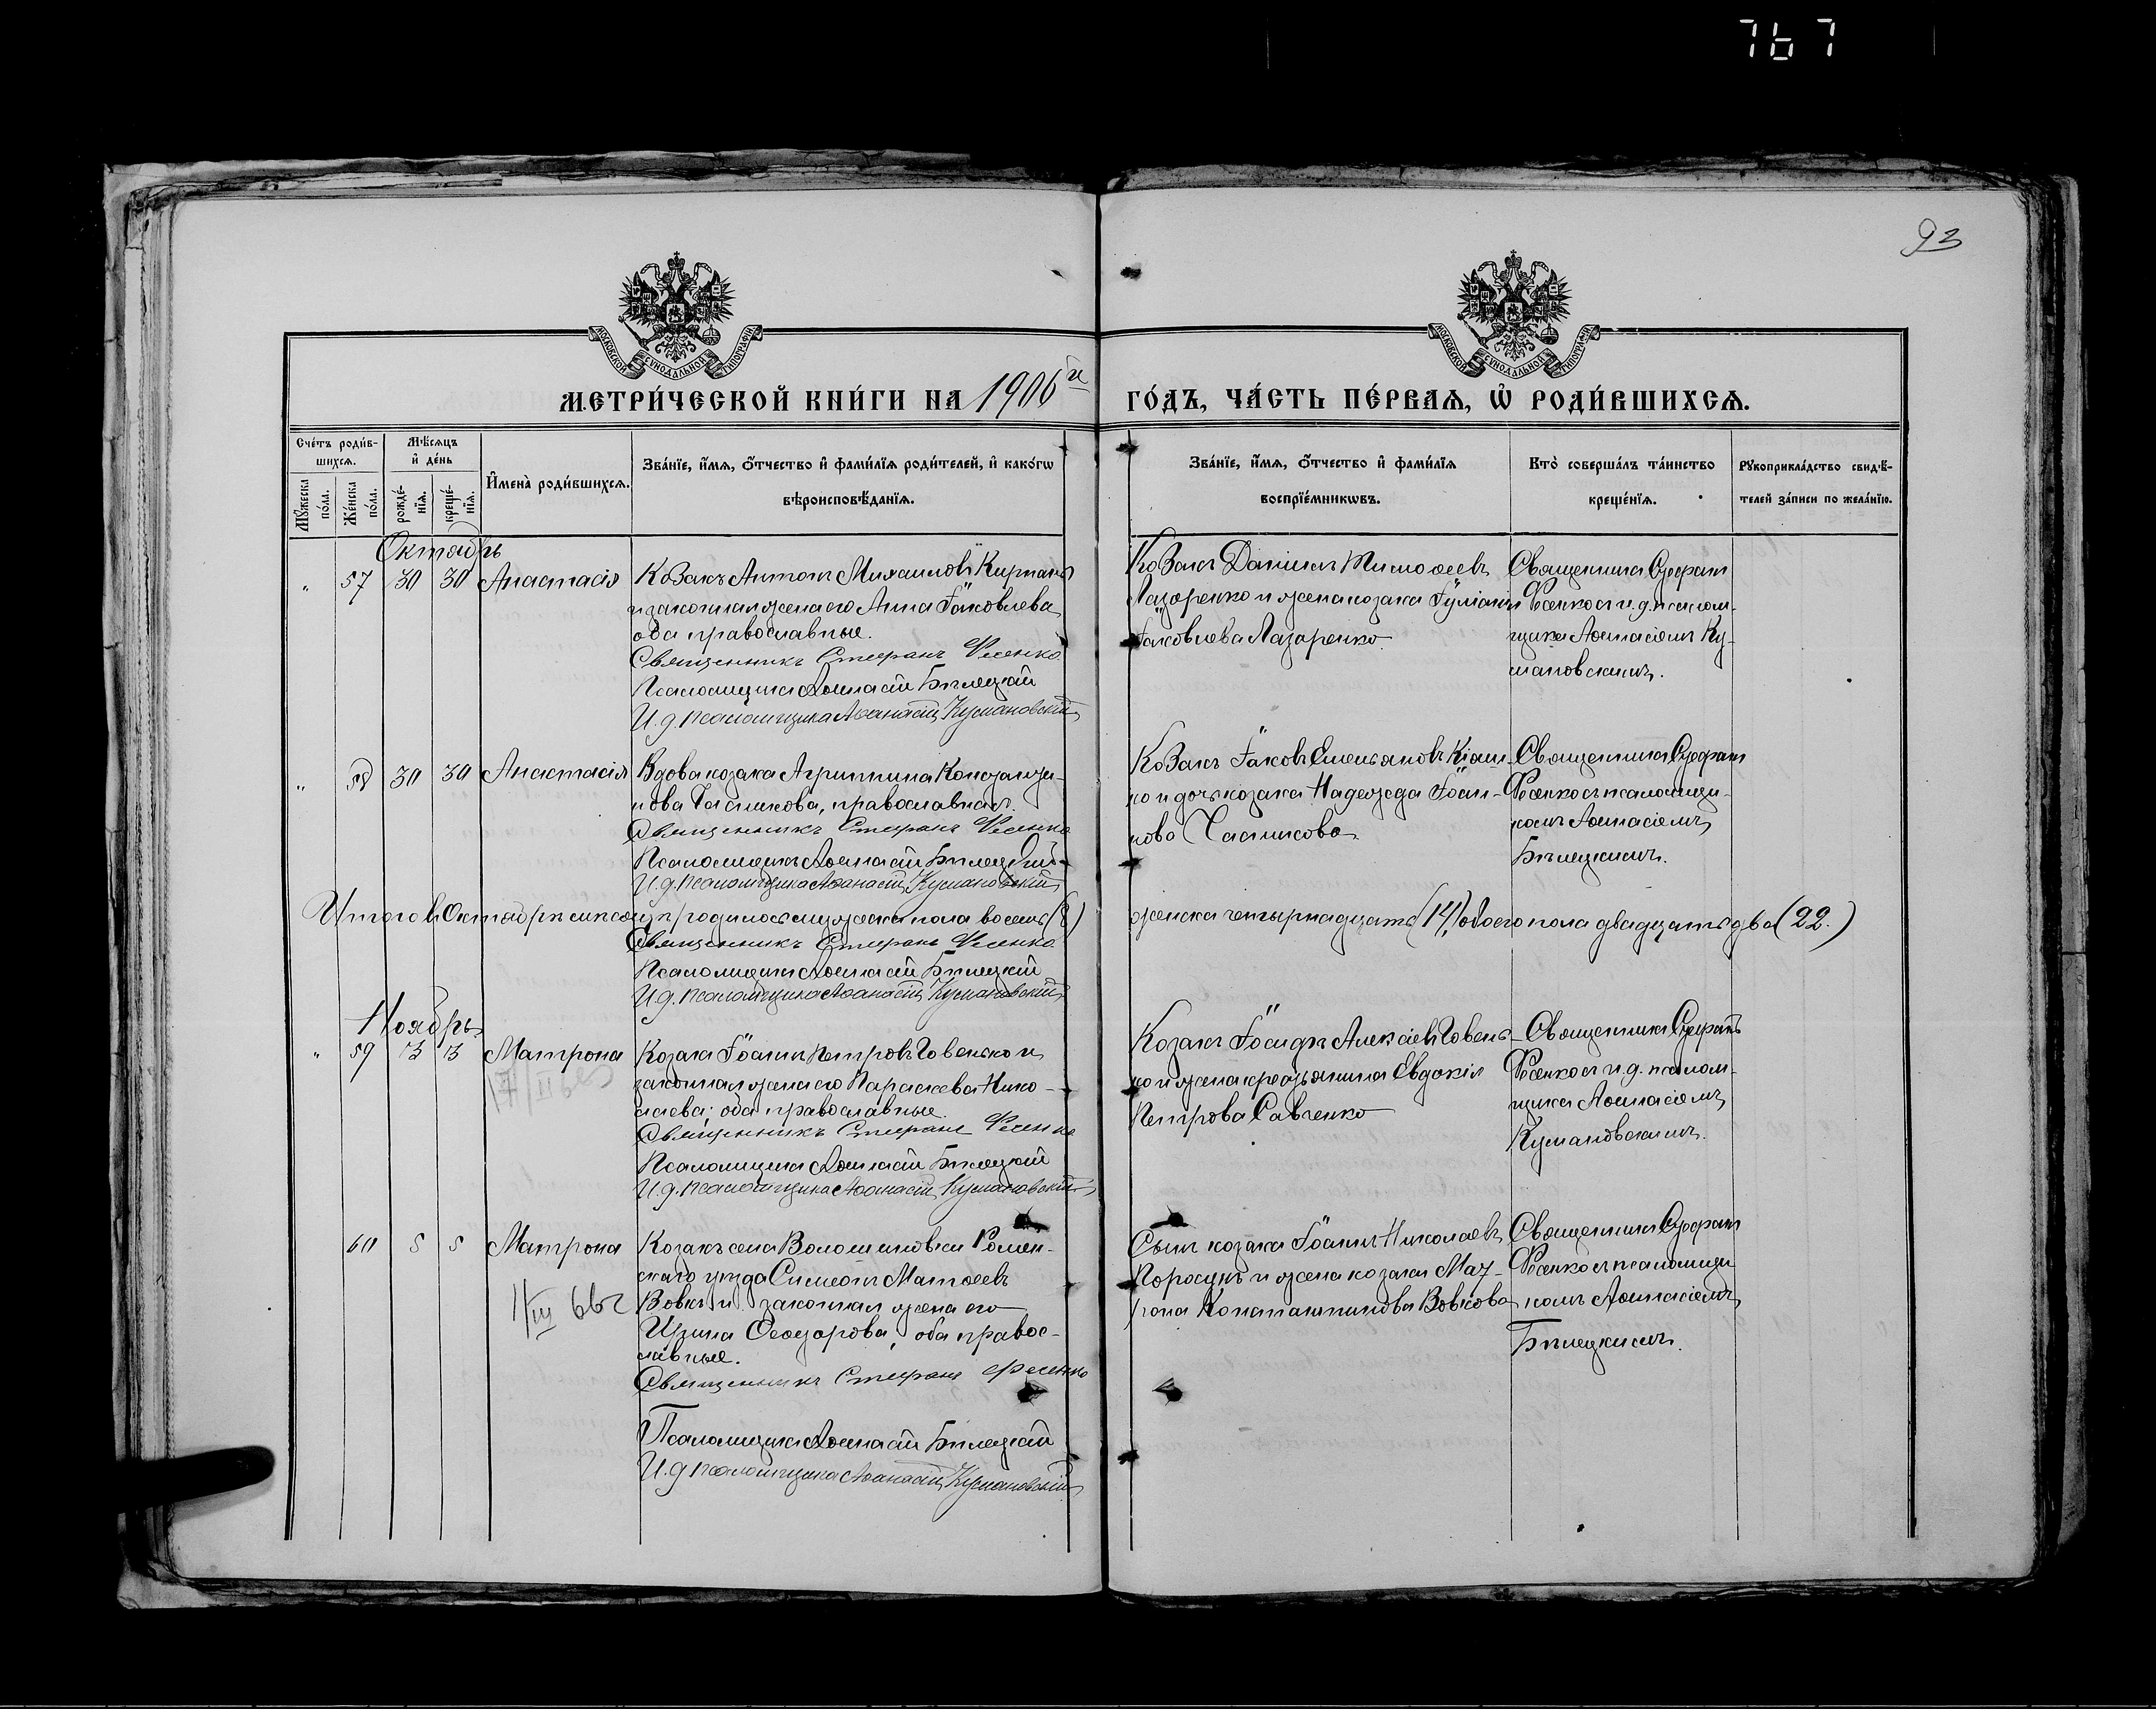 767
93
МОСКОВСКОЙ СУНОДАЛЬНОЙ ТИПОГРАФИИ
МОСКОВСКОЙ СУНОДАЛЬНОЙ ТИПОГРАФИИ
МЕТРИ́ЧЕСКОЙ КНИ́ГИ НА 1906й ГО́ДЪ, ЧА́СТЬ ПЕ́РВАѦ, Ѡ҆ РОДИ́ВШИХСѦ.
Сче́тъ роди́в-
шихсѧ.
Мꙋ́жеска по́ла.
Же́нска по́ла.
Мѣ́сѧцъ
и҆ де́нь
рожде́-
нїѧ.
креще́-
нїѧ.
И҆мена̀ роди́вшихсѧ.
Зва́нїе, и҆́мѧ, ѻ҆́тчество и҆ фами́лїѧ роди́телей, и҆ како́гѡ
вѣроисповѣ́данїѧ.
Зва́нїе, и҆́мѧ, ѻ҆́тчество и҆ фами́лїѧ
воспрїе́мникѡвъ.
Кто̀ соверша́лъ та́инство
креще́нїѧ.
Рꙋкоприкла́дство свидѣ́-
телей за́писи по жела́нїю.
Октябрь
" 57 30 30 Анастасія
Козакъ Антонъ Михаиловъ
и законная жена его Анна Іаковлева
оба православные.
Священникъ Стефанъ Фесенко
Псаломщикъ Аѳанасій Бѣлецкій
И. д. псаломщика Аѳанасій Кумановскій
Козакъ Даніилъ Тимоѳеевъ
Лазоренко и жена козака Іуліанія
Іаковлева Лазоренко.
Священникъ Стефанъ
Фесенко съ и. д. псалом-
щика Аѳанасіемъ Ку-
мановскимъ.
" 58 30 30 Анастасія
Вдова козака Агриппина
нова Часникова, православная.
Священникъ Стефанъ Фесенко
Псаломщикъ Аѳанасій Бѣлецкій
И. д. псаломщика Аѳанасій Кумановскій
Козакъ Іаковъ Емельяновъ Кіяш-
ко и дочь козака Надежда Іоан-
нова Часникова
Священникъ Стефанъ
Фесенко съ псаломщи-
комъ Аѳанасіемъ
Бѣлецкимъ.
Итого въ Октябрѣ мѣсяцѣ родилось мужеска пола восемь (8) женска четырнадцать (14), обоего пола двадцать два (22.)
Священникъ Стефанъ Фесенко
Псаломщикъ Аѳанасій Бѣлецкій
И. д. псаломщика Аѳанасій Кумановскій
Ноябрь
" 59 13 13 Матрона
Козакъ Іоаннъ Петровъ Говенько и
законная жена его Параскева Нико-
лаева; оба православные.
Священникъ Стефанъ Фесенко
Псаломщикъ Аѳанасій Бѣлецкій
И. д. псаломщика Аѳанасій Кумановскій
Козакъ Іосифъ Алексіевъ Говень-
ко и жена крестьянина Евдокія
Петрова Савченко
Священникъ Стефанъ
Фесенко съ и. д. псалом-
щика Аѳанасіемъ
Кумановскимъ.
60 5 5 Матрона
Козакъ села Волошиновки Ромен-
скаго уѣзда Симеонъ Матѳеевъ
Вовкъ и законная жена его
Ирина Ѳеодорова, оба правос-
лавные.
Священникъ Стефанъ Фесенко
Псаломщикъ Аѳанасій Бѣлецкій
И. д. псаломщика Аѳанасій Кумановскій
Сынъ козака Іоаннъ Николаевъ
и жена козака Мат-
рона Константинова Вовкова
Священникъ Стефанъ
Фесенко съ псаломщи-
комъ Аѳанасіемъ
Бѣлецкимъ.